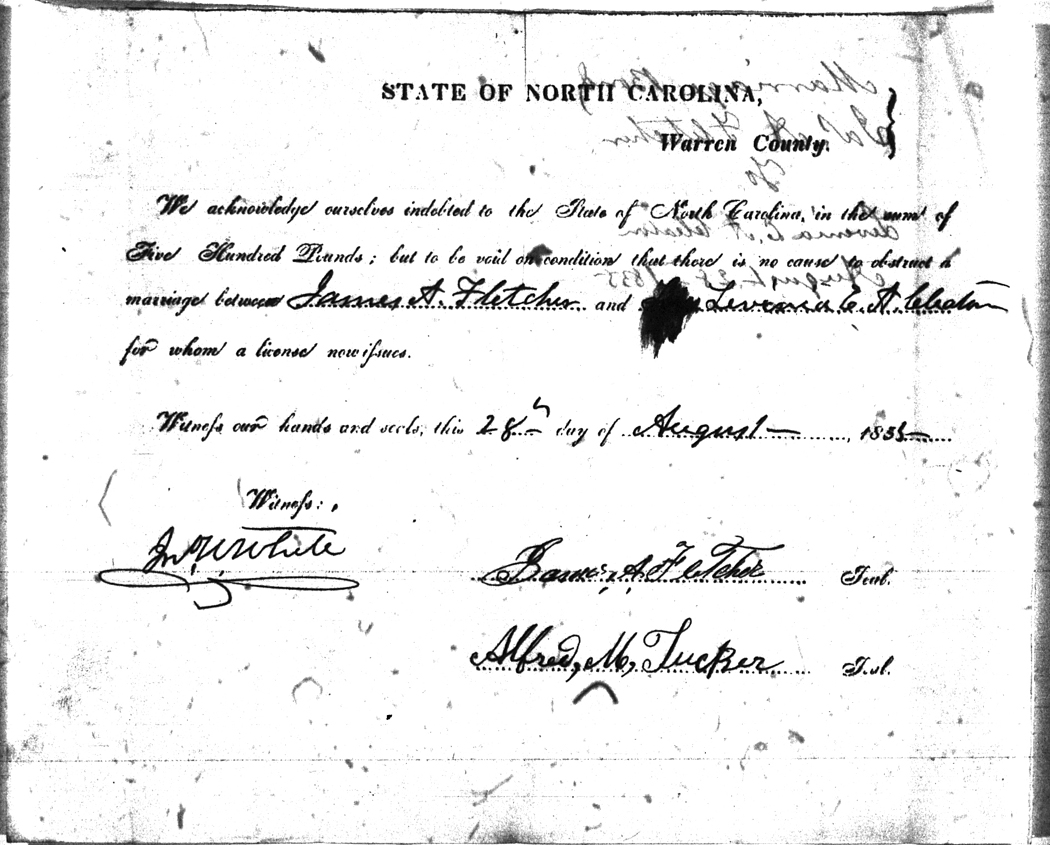 STATE OF NORTH CAROLINA,
Warren County.
We acknowledge ourselves indebted to the State of North Carolina, in the sum of
Five Hundred Pounds; but to be void on condition that there is no cause to obstruct a
marriage between James A. Fletcher and Levenia E. A. Cleaton
for whom a license now issues.
Witness our hands and seals, this 28th day of August, 1835
Witness:
Jno. W White
James, A. Fletcher Seal.
Alfred, M, Tucker Seal.
Marriage Bond
Jas A Fletcher
To
Levenia E. A Cleaton
August 28 1835